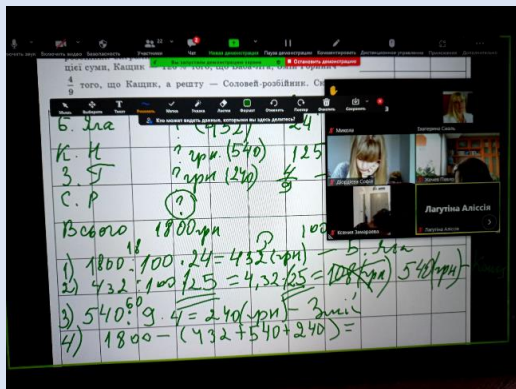 Включить видео Безопасность Участники 22 Чат Новая демонстрация Пауза демонстрации Комментировать Дистанционное управление Приложения Дополнительно
Вы запустили демонстрацию экрана Остановить демонстрацию
цієї суми, Кащик — 125 % того, що
4/9 того, що Кащик, а решту — Соловей-розбійник.
Мышь Выбрать Текст Рисовать Формат Отменить Повтор Очистить Сохранить
Кто может видеть данные, которыми вы здесь делитесь?
Б. Яга ? (432) 24
К. Н ? грн (540) 125
З. П ? грн (240) 4/9
С. Р ?
Всього 1800 грн 100
1) 1800 : 100 · 24 = 432 (грн) — Б. Яга
2) 432 : 100 · 125 = 4,32 · 125 = 540 (грн) —
3) 540 : 9 · 4 = 240 (грн) — Змій
4) 1800 — (432 + 540 + 240) =
Микола
Екатерина Сааль
Ксения Замараева
Лагутіна Аліссія
Лагутіна Аліссія